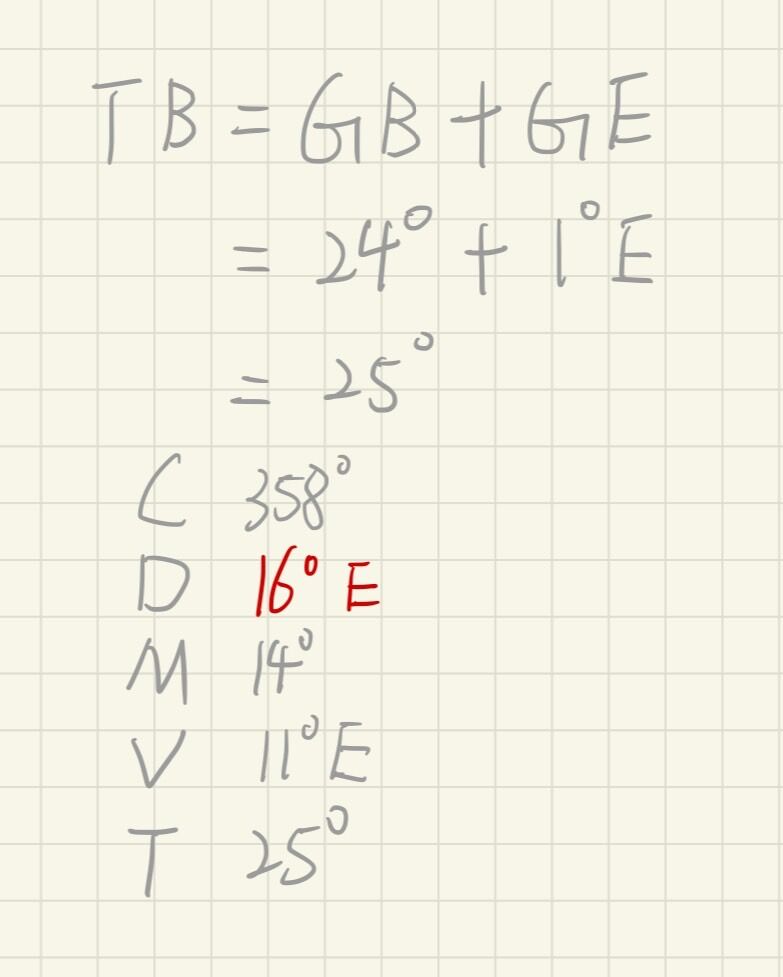 TB = GB + GE
= 24° + 1°E
= 25°
C 358°
D 16° E
M 14°
V 11°E
T 25°